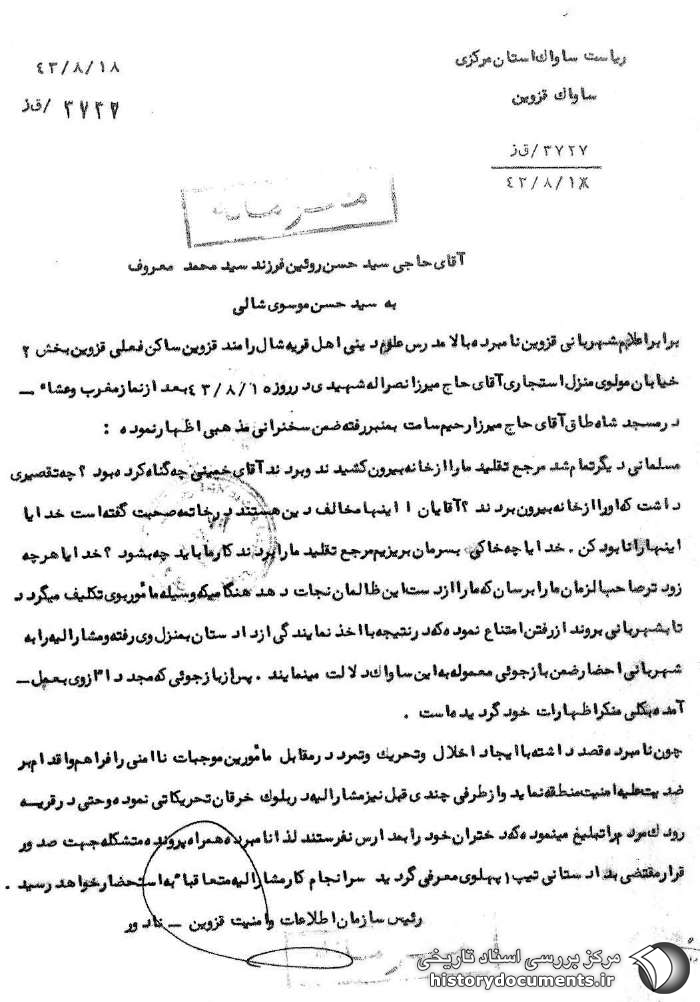 ریاست ساواک استان مرکزی
ساواک قزوین
۴۳/۸/۱۸
۳۷۲۷/ق‌ز
۳۷۲۷/ق‌ز
۴۳/۸/۱۸
محرمانه
آقای حاجی سید حسن روئین فرزند سید محمد معروف
به سید حسن موسوی شالی
برابر اعلام شهربانی قزوین نامبرده بالا مدرس علوم دینی اهل قریه شال رامند قزوین ساکن فعلی قزوین بخش ۲
خیابان مولوی منزل استجاری آقای حاج میرزا نصراله شهیدی در روز ۴۳/۸/۱۵ بعد از نماز مغرب و عشاء –
در مسجد شاه طاق آقای حاج میرزا رحیم سامت بمنبر رفته ضمن سخنرانی مذهبی اظهار نموده :
مسلمانی دیگر تمام شد مرجع تقلید ما را از خانه بیرون کشیدند و بردند آقای خمینی چه گناه کرده بود ؟ چه تقصیری
داشت که او را از خانه بیرون بردند ؟ آقایان ! اینها مخالف دین هستند در خاتمه صحبت گفته است خدایا
اینها را نابود کن . خدایا چه خاکی بسرمان بریزیم مرجع تقلید ما را بردند کار ما باید چه بشود ؟ خدایا هر چه
زودتر صاحب الزمان ما را برسان که ما را از دست این ظالمان نجات دهد هنگامیکه وسیله مأمور بوی تکلیف میگردد
تا بشهربانی بروند از رفتن امتناع نموده که در نتیجه با اخذ نمایندگی از دادستان بمنزل وی رفته و مشارالیه را به
شهربانی احضار ضمن بازجوئی معموله به این ساواک دلالت مینمایند . پس از بازجوئی که مجددا" از وی بعمل –
آمده بکلی منکر اظهارات خود گردیده است .
چون نامبرده قصد داشته با ایجاد اخلال و تحریک و تمرد در مقابل مأمورین موجبات ناامنی را فراهم و اقدام بر
ضدیت علیه امنیت منطقه نماید و از طرفی چندی قبل نیز مشارالیه در بلوک خرقان تحریکاتی نموده و حتی در قریه
رودک مردم را تبلیغ مینموده که دختران خود را بمدارس نفرستند لذا نامبرده همراه پرونده متشکله جهت صدور
قرار مقتضی بدادستانی تیپ ۱ پهلوی معرفی گردید سرانجام کار مشارالیه متعاقبا" به استحضار خواهد رسید .
رئیس سازمان اطلاعات و امنیت قزوین – نادور
مرکز بررسی اسناد تاریخی
historydocuments.ir